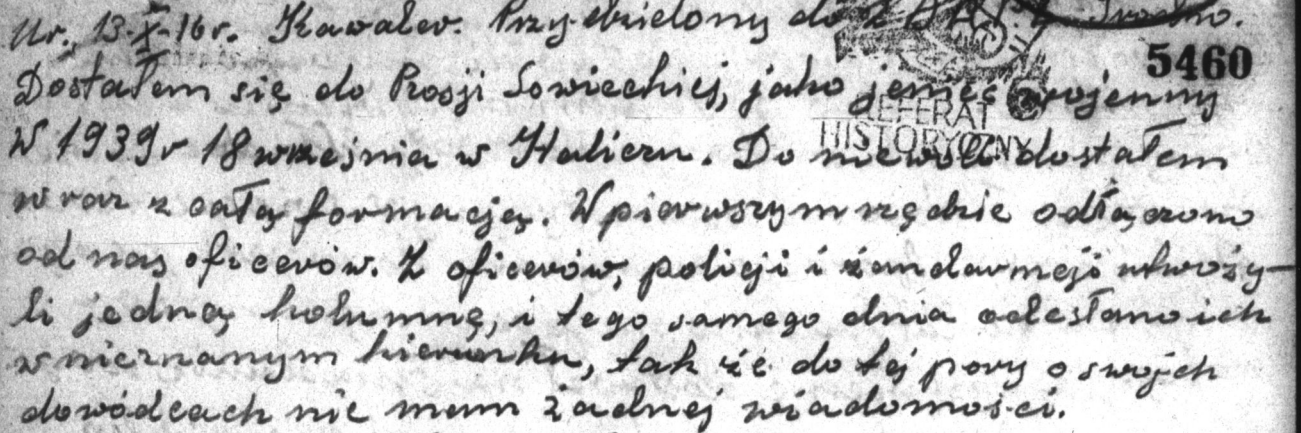 Ur. 13-X-16r. Kawaler. Przydzielony do
5460
Dostałem się do Rosji Sowieckiej, jako jeniec wojenny
REFERAT
HISTORYCZNY
W 1939r 18 września w Haliczu. Do niewoli dostałem
wraz z całą formacją. W pierwszym rzędzie odłączono
od nas oficerów. Z oficerów, policji i żandarmeji utworzy-
li jedną kolumnę, i tego samego dnia odesłano ich
w nieznanym kierunku, tak że do tej pory o swojch
dowódcach nie mam żadnej wiadomości.